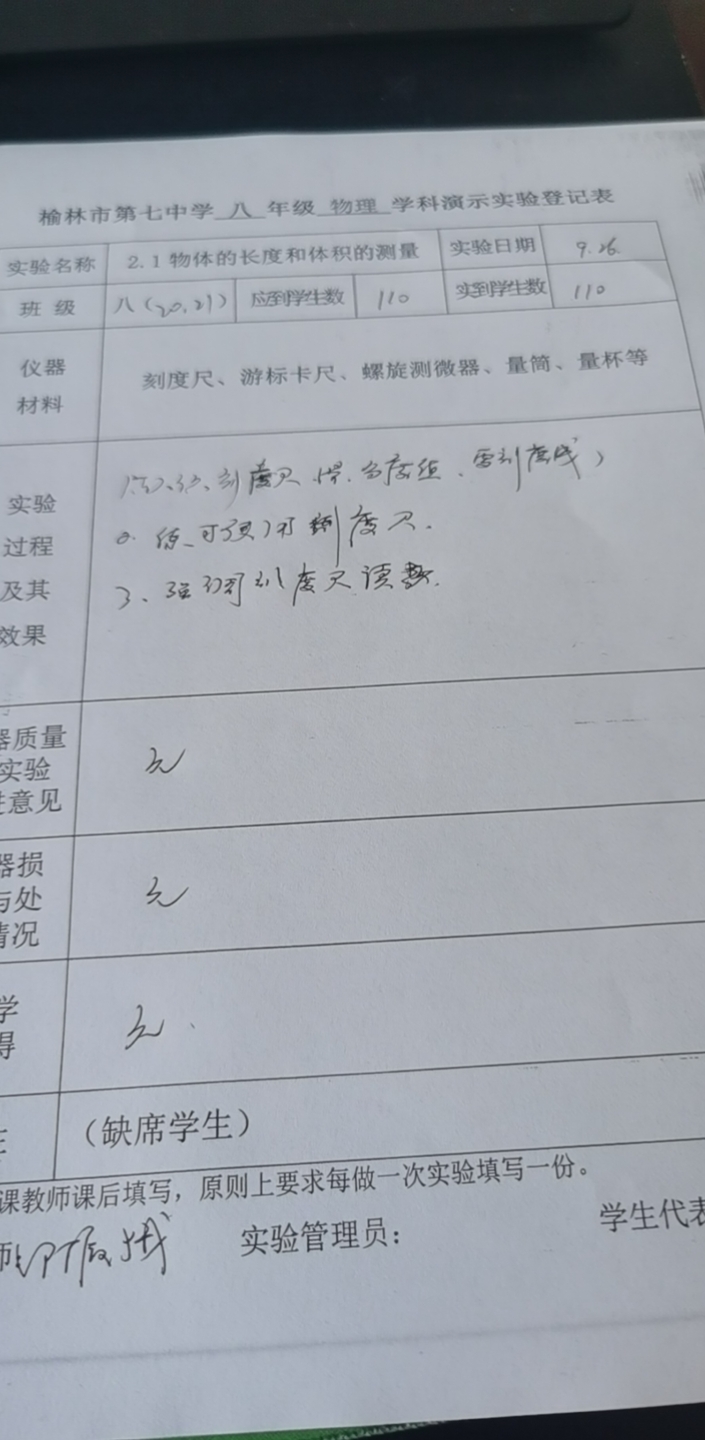 榆林市第七中学 八 年级 物理 学科演示实验登记表
实验名称 2.1物体的长度和体积的测量 实验日期 9.26.
班级 八（20,21） 应到学生数 110 实到学生数 110
仪器
材料
刻度尺、游标卡尺、螺旋测微器、量筒、量杯等
实验
过程
及其
效果
刻度尺
刻度尺.
3、 刻度尺读数.
器质量
实验
意见
无
器损
与处
情况
无
学
得
无.
（缺席学生）
课教师课后填写，原则上要求每做一次实验填写一份。
师 实验管理员： 学生代表